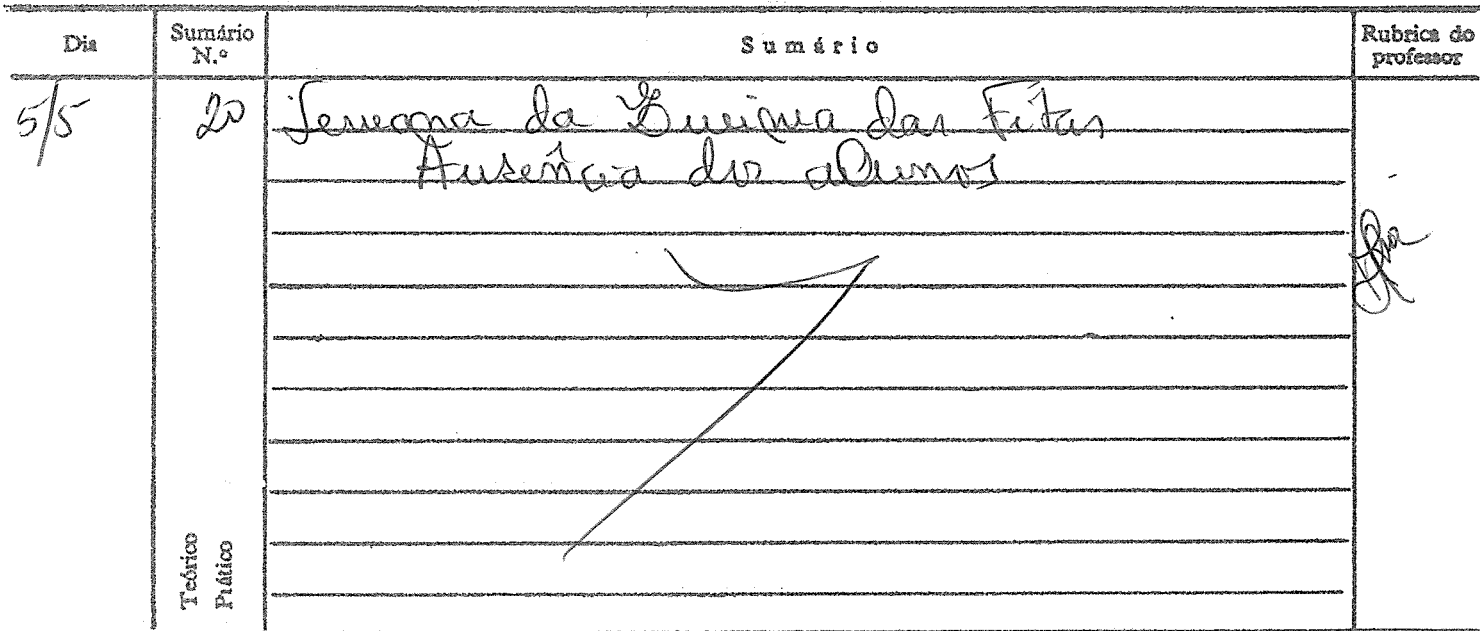 Dia Sumário N.º Sumário Rubrica do professor
5/5 20 Semana da Queima das Fitas
Ausência dos alunos
Teórico
Prático